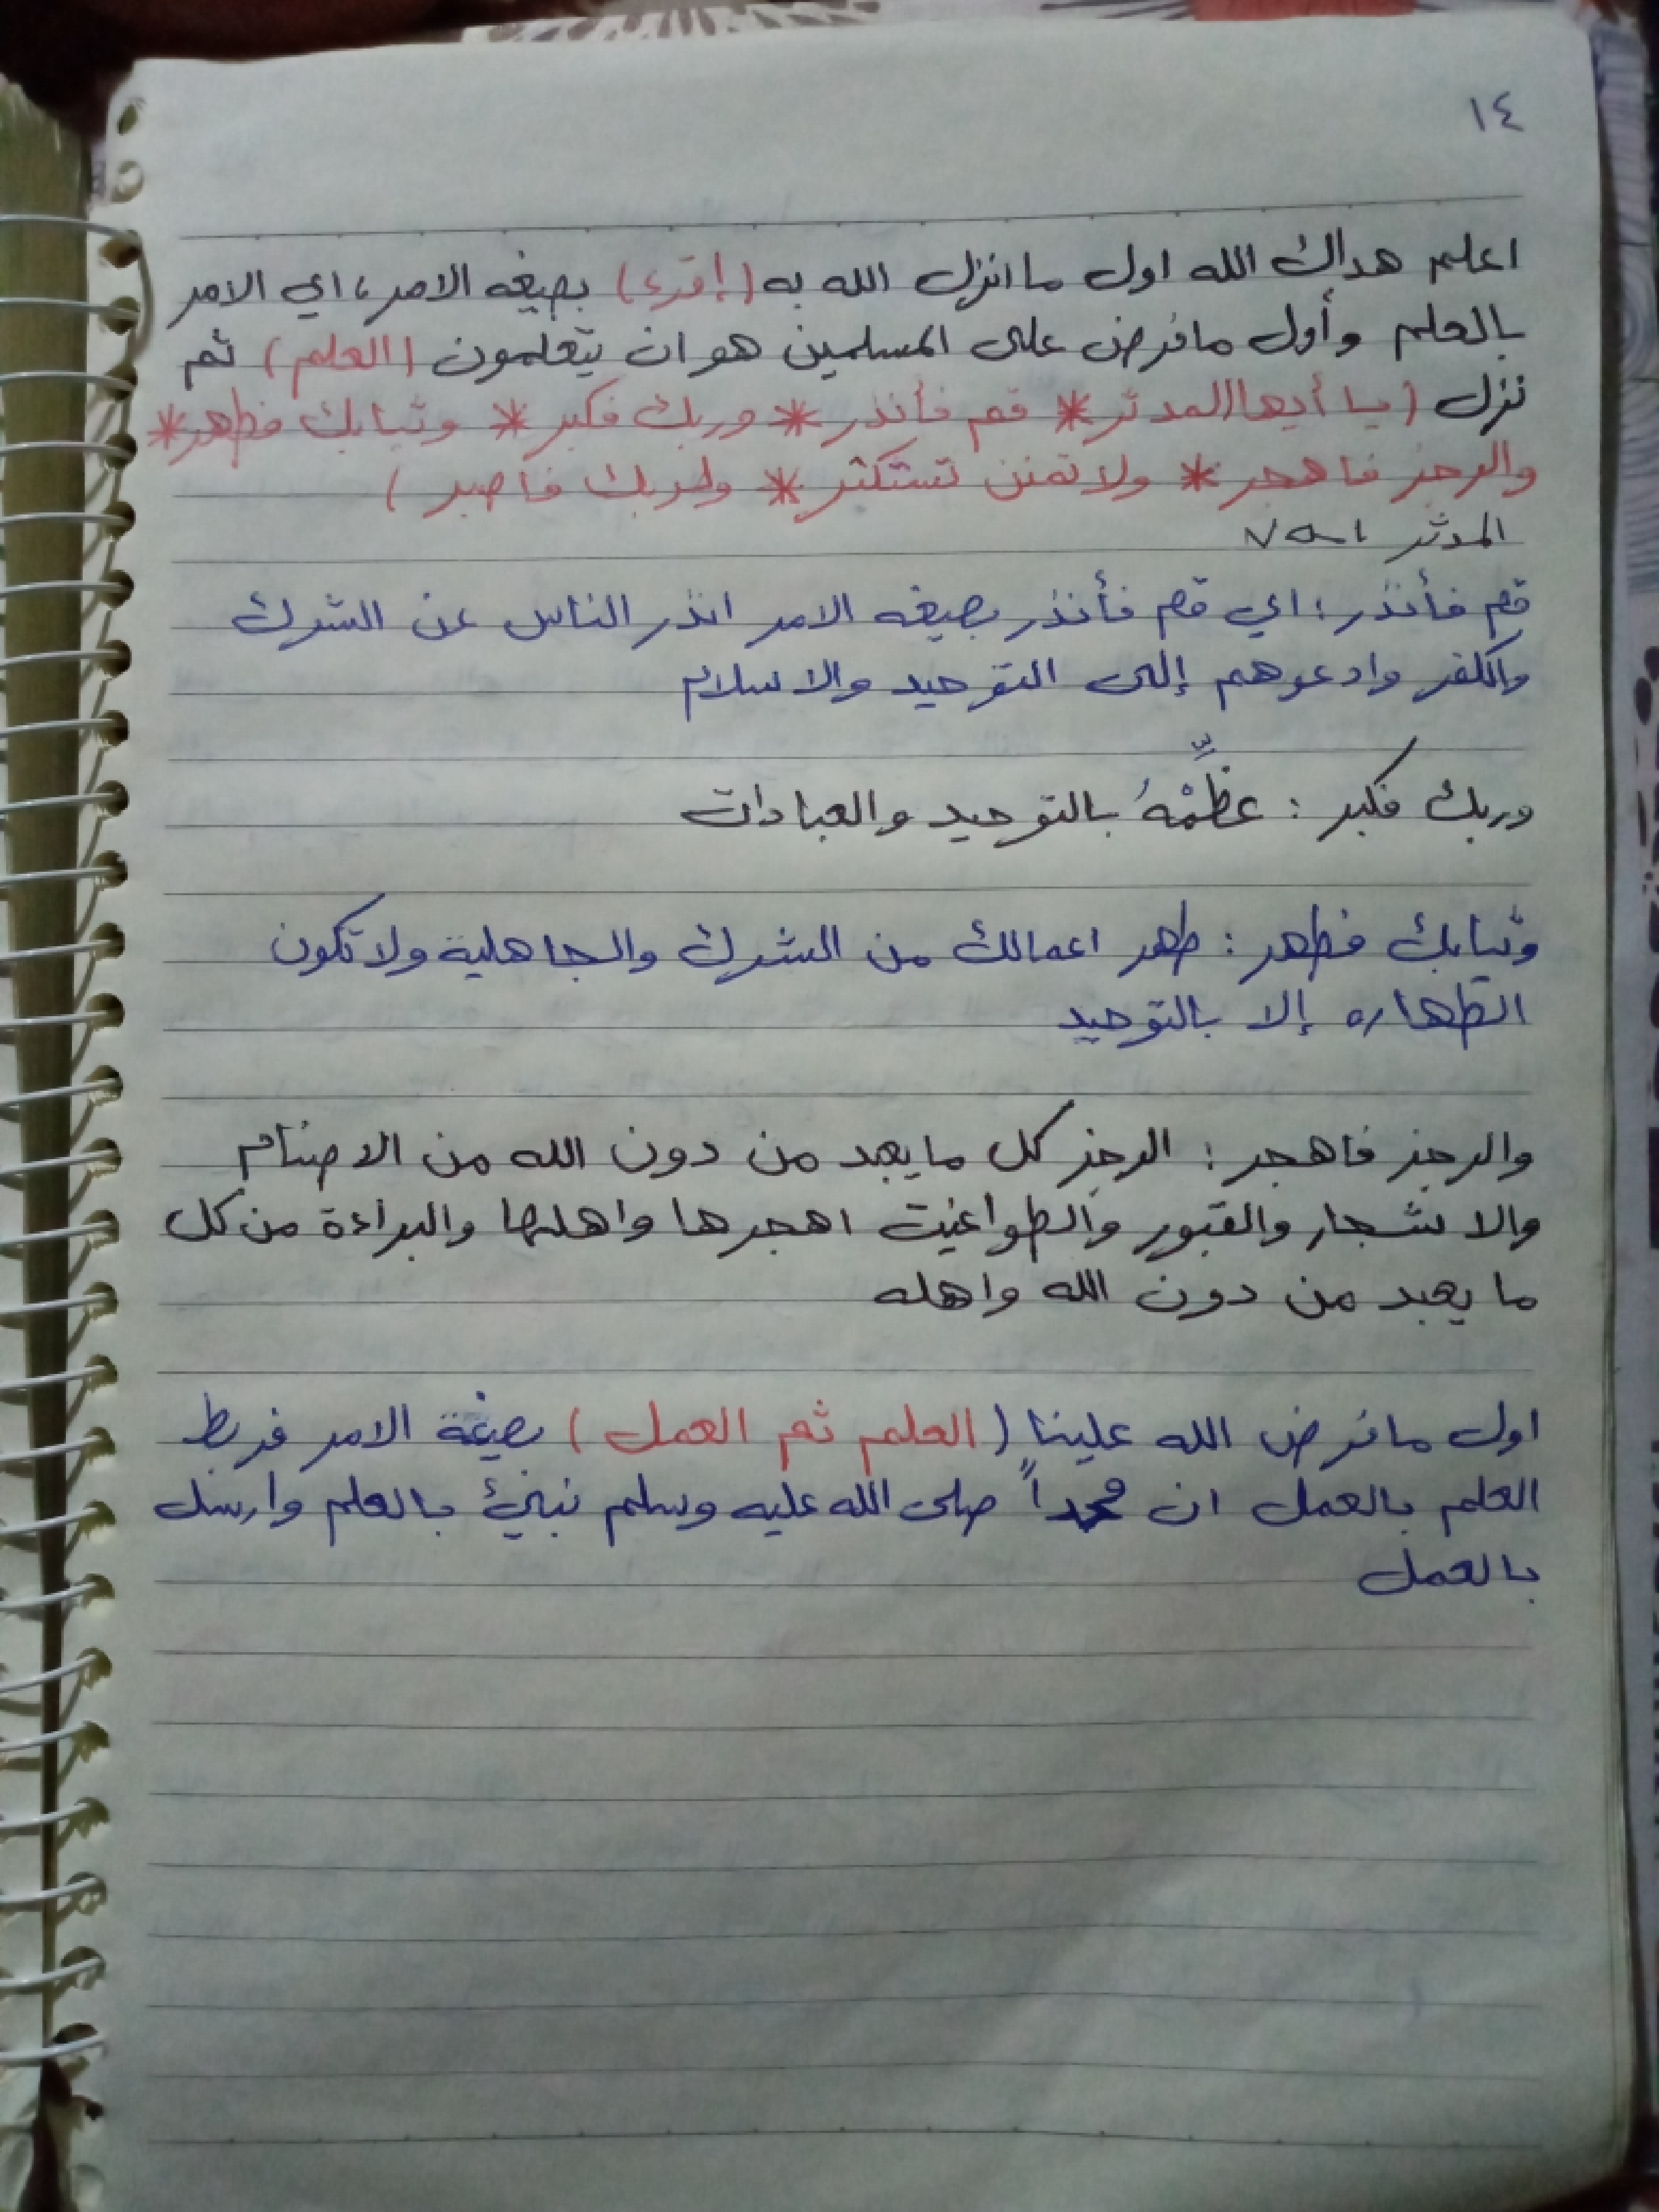 ١٤
اعلم هداك الله اول ما انزل الله به (إقرء) بصيغه الامر، اي الامر
بالعلم وأول مافرض على المسلمين هو ان يتعلمون (العلم) ثم
نزل (يا أيها المدثر * قم فأنذر * وربك فكبر * وثيابك فطهر *
والرجز فاهجر * ولا تمنن تستكثر * ولربك فاصبر)
المدثر ١-٧
قم فأنذر: اي قم فأنذر بصيغه الامر انذر الناس عن الشرك
والكفر وادعوهم إلى التوحيد والاسلام
وربك فكبر: عظِّمْهُ بالتوحيد والعبادات
وثيابك فطهر: طهر اعمالك من الشرك والجاهلية ولا تكون
الطهاره إلا بالتوحيد
والرجز فاهجر: الرجز كل ما يعبد من دون الله من الاصنام
والاشجار والقبور والطواغيت اهجرها واهلها والبراءة من كل
ما يعبد من دون الله واهله
اول مافرض الله علينا (العلم ثم العمل) بصيغة الامر فربط
العلم بالعمل ان محمداً صلى الله عليه وسلم نبئ بالعلم وارسل
بالعمل